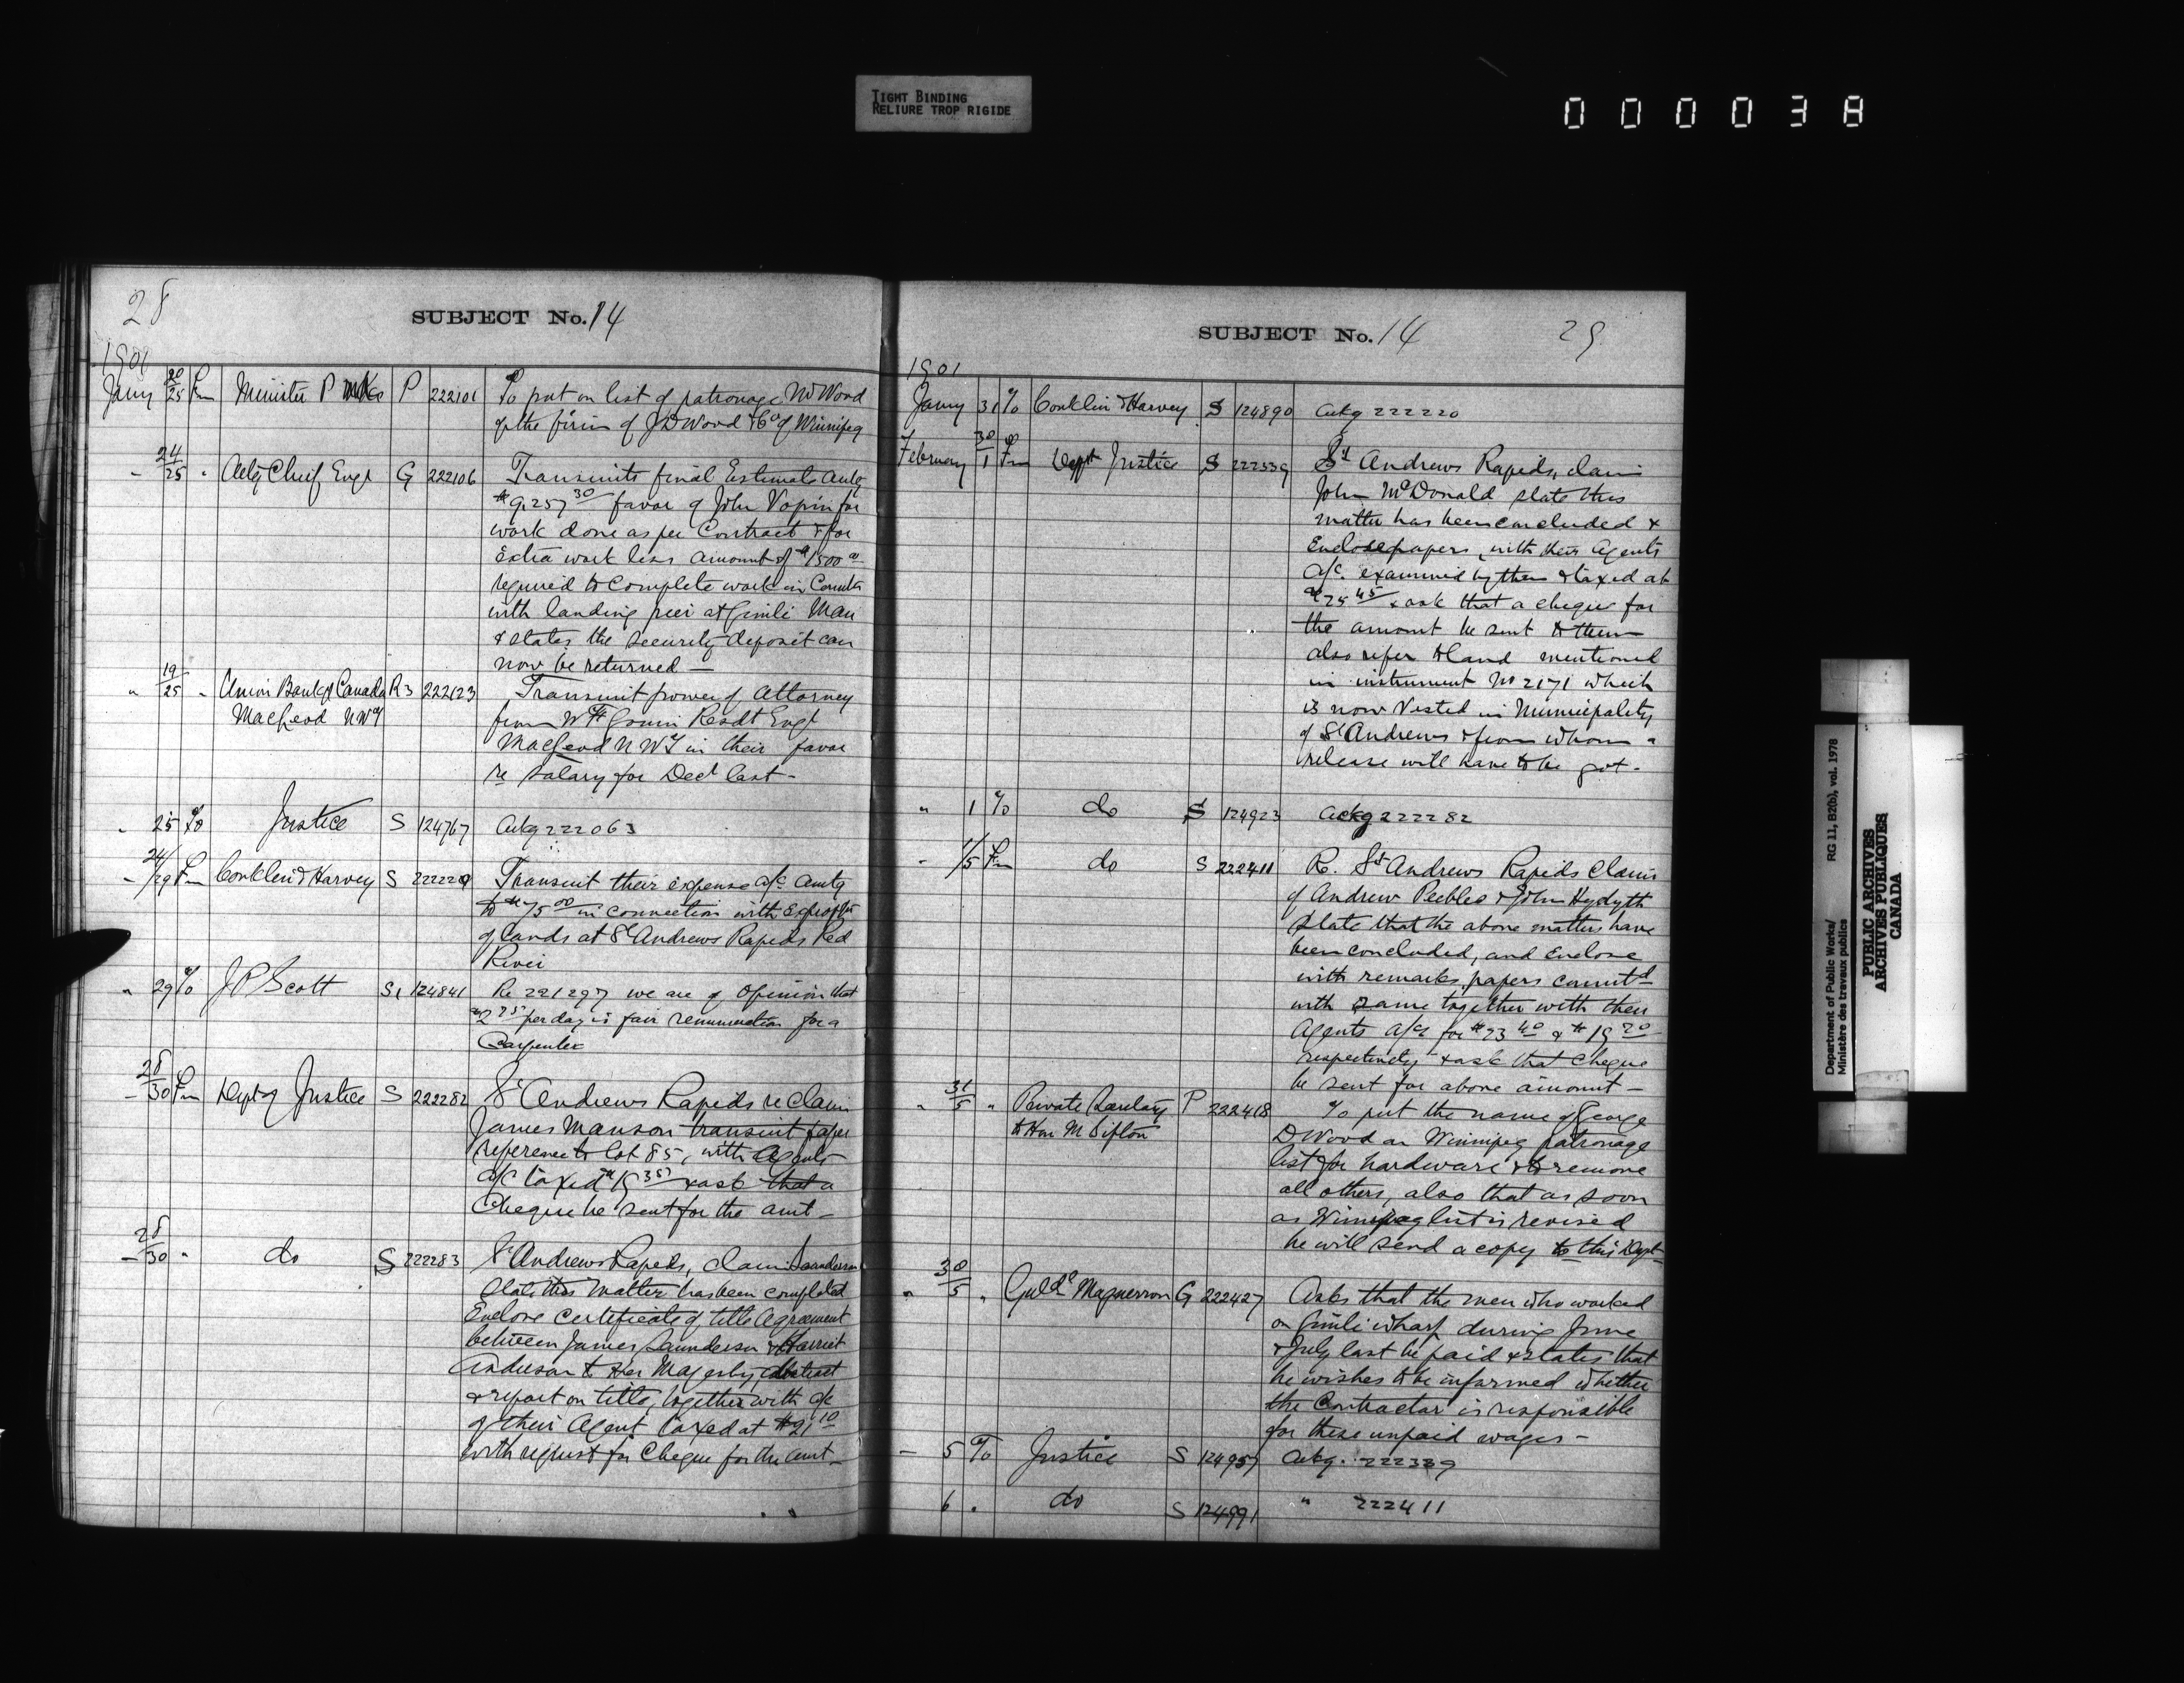 TIGHT BINDING
RELIURE TROP RIGIDE
000038
28
SUBJECT No. 14
1901
Jany 20/25 Fm Minister P Wks P 222101 To put on list of patronage Mr Wood
of the firm of J D Wood & Co of Winnipeg
" 24/25 " Actg Chief Engr G 222106 Transmits final Estimate amtg
$9,257 30 favor of John for
work done as per Contract & for
Extra work less amount of $1500 00
required to complete work in Connctn
with landing pier at Gimli Man
& states the security deposit can
now be returned —
" 19/25 " Union Bank of Canada R3 222123 Transmit power of Attorney
Macleod NWT from W Resdt Engr
Macleod NWT in their favor
re Salary for Decr last -
" 25 To Justice S 124767 Ackg 222063
" 24/29 Fm Conklin & Harvey S 222220 Transmit their expense a/c amtg
to $75 00 in connection with Expropn
of lands at St Andrews Rapids Red
River
" 29 To J P Scott S1 124841 Re 221297 we are of opinion that
$2 25 per day is fair remuneration for a
Carpenter
" 28/30 Fm Dept of Justice S 222282 St Andrews Rapids re claim
James Manson transmit paper
reference to lot 85, with Agents
a/c taxed & ask that a
Cheque be sent for the amt -
" 28/30 " do S 222283 St Andrews Rapids, claim Saunderson
State this matter has been completed
Enclose certificate of title Agreement
between James Saunderson & Harriet
Anderson & Her Majesty, abstract
& report on title, together with a/c
of their Agent taxed at $21 10
with request for Cheque for the amt -
SUBJECT No. 14
29
1901
Jany 31 To Conklin & Harvey S 124890 Ackg 222220
February 30/1 Fm Dept Justice S 222339 St Andrews Rapids, claim
John McDonald state this
matter has been concluded &
Enclose papers, with their Agents
a/c. examined by them & taxed at
$25 45 & ask that a cheque for
the amount be sent to them
also refer to land mentioned
in instrument No 2171 which
is now Vested in Municipality
of St Andrews & from whom a
release will have to be got -
" 1 To do S 124923 Ackg 222282
" 1/5 Fm do S 222411 R. St Andrews Rapids Claims
of Andrew Peebles & John
State that the above matters have
been concluded, and Enclose
with remarks, papers connctd
with same together with their
Agents a/cs for $23 40 & $19 20
respectively & ask that Cheque
be sent for above amount -
" 31/5 " Private Secretary P 222418 To put the name of George
to Hon Mr Sifton D Wood on Winnipeg patronage
list for hardware & to remove
all others, also that as soon
as Winnipeg list is revised
he will send a copy to this Dept -
" 30/5 " Magnusson G 222427 Asks that the men who worked
on Gimli wharf during June
& July last be paid & states that
he wishes to be informed whether
the Contractor is responsible
for these unpaid wages -
— 5 To Justice S 124957 Ackg. 222339
6 " do S 124991 " 222411
Department of Public Works/ RG 11, B2(b), vol. 1978
Ministère des travaux publics
PUBLIC ARCHIVES
ARCHIVES PUBLIQUES
CANADA